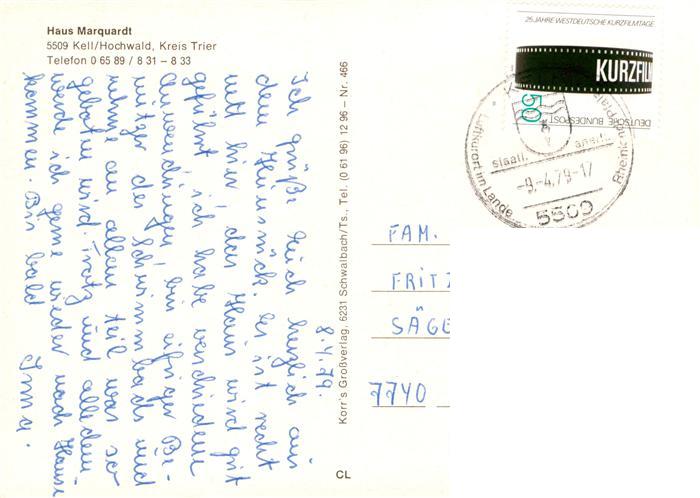 Haus Marquardt
5509 Kell/Hochwald, Kreis Trier
Telefon 0 65 89 / 8 31 – 8 33
8.4.79.
Ich grüße Euch herzlich aus
dem Hunsrück. Es ist recht
nett hier, das Haus wird gut
geführt, ich habe verschiedene
Anwendungen, bin eifriger Be-
nutzer des Schwimmbads und
nehme an allem teil was so
geboten wird. Trotz und alledem
werde ich gerne wieder nach Hause
kommen. Bis bald Irma.
Korr's Großverlag, 6231 Schwalbach/Ts., Tel. (0 61 96) 12 96 – Nr. 466
CL
25 JAHRE WESTDEUTSCHE KURZFILMTAGE
KURZFILM
50
DEUTSCHE BUNDESPOST
staatl. anerk.
Luftkurort im Lande Rheinland-Pfalz
-9.-4.79-17
5509
FAM.
FRITZ
SÄGE
7740